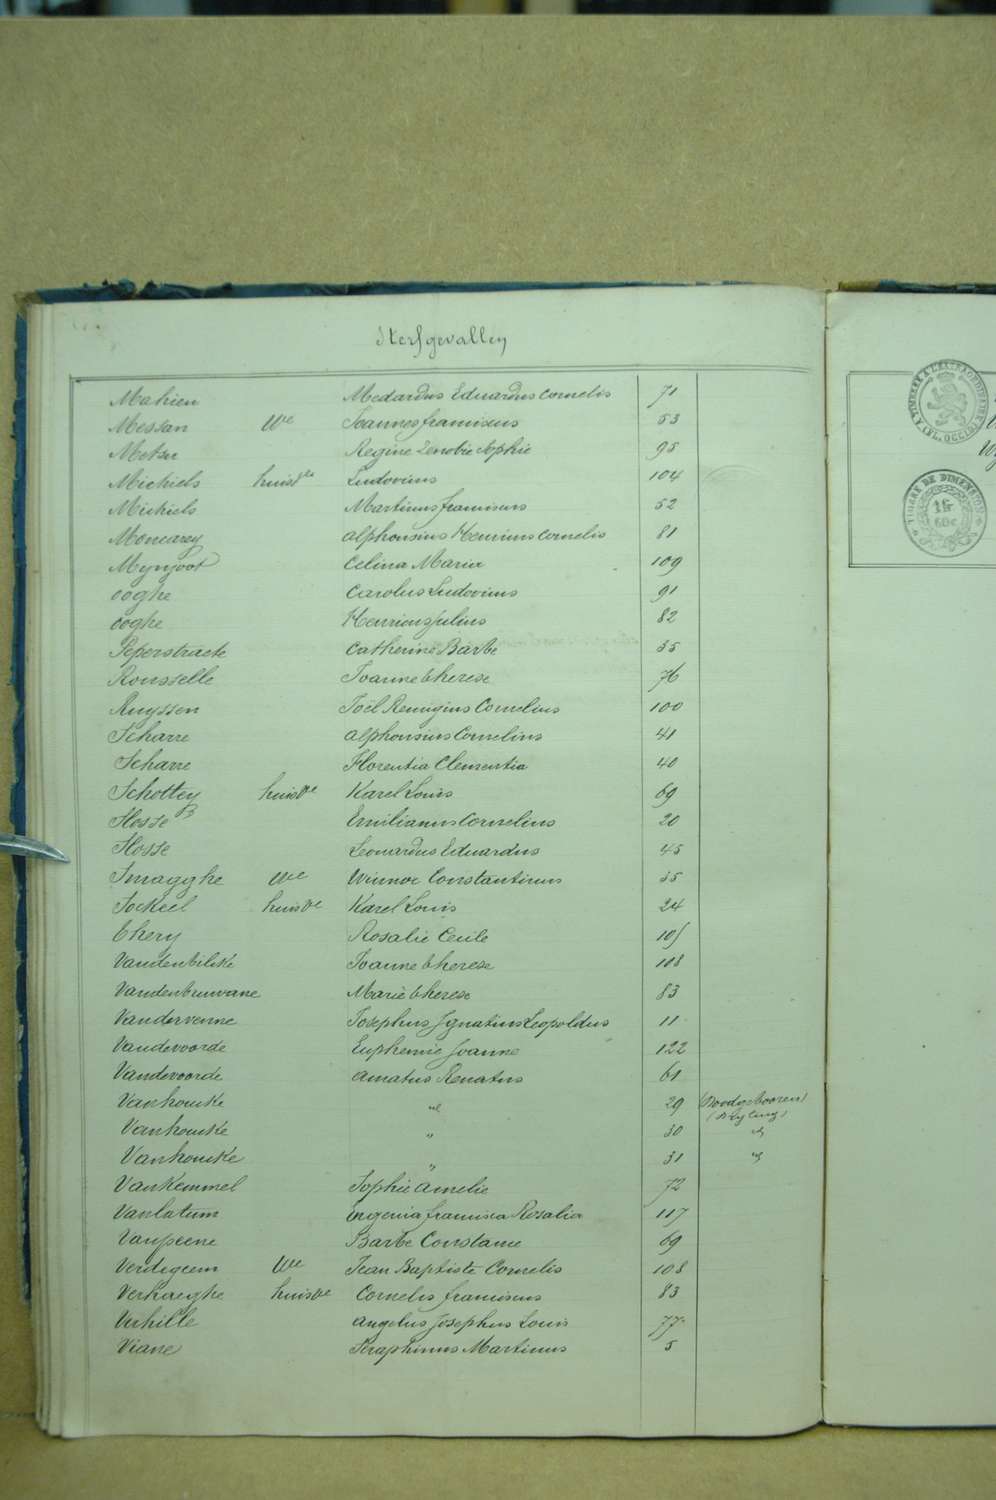 Sterfgevallen
Mahieu Medardus Eduardus Cornelis 71
Messan We Joannes franciscus 53
Metsu Regine Zenobie Sophie 95
Michiels huisve Ludovicus 104
Michiels Martinus franciscus 52
Moncarey Alphonsius Henricus Cornelis 81
Mynjoot Celina Maria 109
Ooghe Carolus Ludovicus 91
Ooghe Henricus Julius 82
Peperstraete Catherine Barbe 35
Rousselle Joanne Therese 76
Ruyssen Joël Remigius Cornelius 100
Scharre Alphonsius Cornelius 41
Scharre Florentia Clementia 40
Schottey huisve Karel Louis 69
Slosse Emilianus Cornelius 20
Slosse Leonardus Eduardus 45
Smagghe We Winnoc Constantinus 35
Sockeel huisve Karel Louis 24
Thery Rosalie Cecile 105
Vandenbilcke Joanne Therese 108
Vandenbruwane Marie Therese 83
Vandervenne Josephus Ignatius Leopoldus 11
Vandevoorde Euphemie Joanne 122
Vandevoorde Amatus Renatus 61
Vanhoucke " 29 (Doodgebooren)
Vanhoucke " 30 "
Vanhoucke " 31 "
Vankemmel Sophie Amelie 72
Vanlatum Eugenia francisca Rosalia 117
Vanpeene Barbe Constance 69
Verdegem We Jean Baptiste Cornelis 108
Verhaeghe huisve Cornelis franciscus 83
Verhille Angelus Josephus Louis 77
Viane Seraphinus Martinus 5
TIMBRE A L'EXTRAORDINAIRE
(FL. OCCID.)
TIMBRE DE DIMENSION